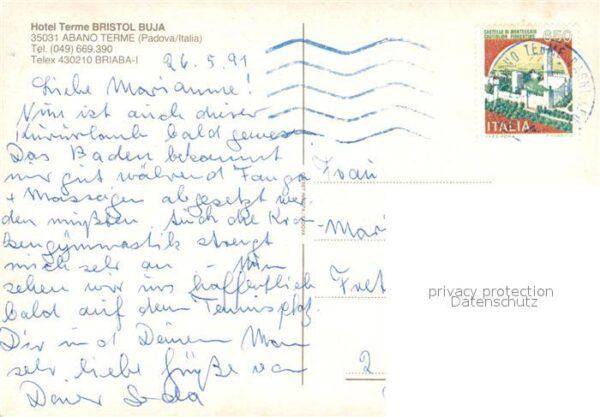 Hotel Terme BRISTOL BUJA
35031 ABANO TERME (Padova/Italia)
Tel. (049) 669.390
Telex 430210 BRIABA-I
26.5.91
Liebe Marianne!
Nun ist auch dieser
Kururlaub bald gewesen
Das Baden bekommt
mir gut während Fango
+ Massagen abgesetzt wer-
den mußten. Auch die
gymnastik strengt
mich sehr an - Nun
sehen wir uns hoffentlich
bald auf dem Tennisplatz
Dir und Deinem Mann
sehr liebe Grüße von
Deiner
Frau
Mari
Fret
2
CASTELLO DI MONTECCHIO
CASTIGLION FIORENTINO
650
ITALIA
privacy protection
Datenschutz